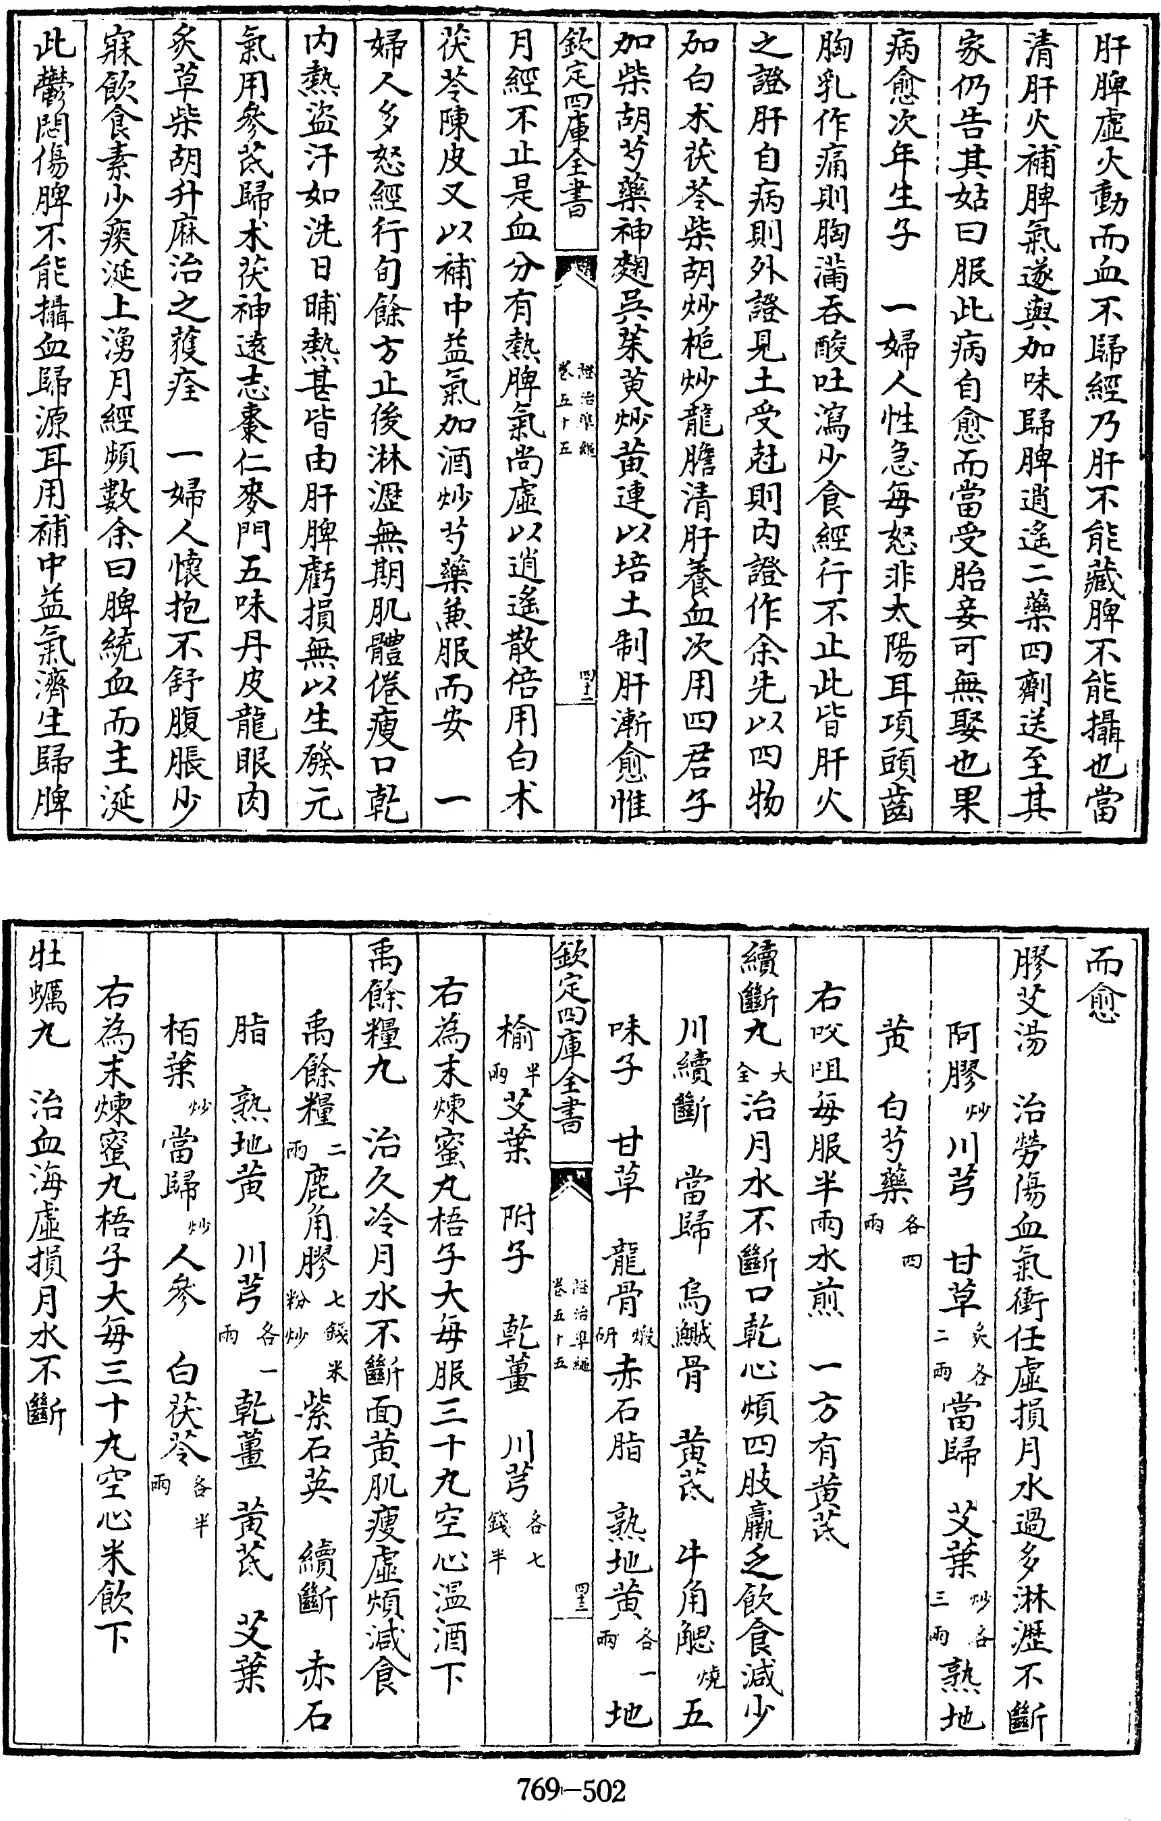 肝脾虛火動而血不歸經乃肝不能藏脾不能攝也當
清肝火補脾氣遂與加味歸脾逍遙二藥四劑送至其
家仍告其姑曰服此病自愈而當受胎妾可無娶也果
病愈次年生子　一婦人性急每怒非太陽耳項頭齒
胸乳作痛則胸滿吞酸吐瀉少食經行不止此皆肝火
之證肝自病則外證見土受尅則內證作余先以四物
加白朮茯苓柴胡炒梔炒龍膽清肝養血次用四君子
加柴胡芍藥神麯吳茱萸炒黃連以培土制肝漸愈惟
欽定四庫全書
證治準繩
卷五十五
四十二
月經不止是血分有熱脾氣尚虛以逍遙散倍用白朮
茯苓陳皮又以補中益氣加酒炒芍藥兼服而安　一
婦人多怒經行旬餘方止後淋瀝無期肌體倦瘦口乾
內熱盜汗如洗日晡熱甚皆由肝脾虧損無以生發元
氣用參芪歸朮茯神遠志棗仁麥門五味丹皮龍眼肉
炙草柴胡升麻治之獲痊　一婦人懷抱不舒腹脹少
寐飲食素少痰涎上湧月經頻數余曰脾統血而主涎
此鬱悶傷脾不能攝血歸源耳用補中益氣濟生歸脾
而愈
膠艾湯　治勞傷血氣衝任虛損月水過多淋瀝不斷
阿膠炒　川芎　甘草炙各二兩　當歸　艾葉炒各三兩　熟地
黃　白芍藥各四兩
右㕮咀每服半兩水煎　一方有黃芪
續斷丸大全　治月水不斷口乾心煩四肢羸乏飲食減少
川續斷　當歸　烏鰂骨　黃芪　牛角䚡燒　五
味子　甘草　龍骨煅研　赤石脂　熟地黃各一兩　地
欽定四庫全書
證治準繩
卷五十五
四十三
榆半兩　艾葉　附子　乾薑　川芎各七錢半
右為末煉蜜丸梧子大每服三十丸空心溫酒下
禹餘糧丸　治久冷月水不斷面黃肌瘦虛煩減食
禹餘糧二兩　鹿角膠七錢米粉炒　紫石英　續斷　赤石
脂　熟地黃　川芎各一兩　乾薑　黃芪　艾葉
栢葉炒　當歸炒　人參　白茯苓各半兩
右為末煉蜜丸梧子大每三十丸空心米飲下
牡蠣丸　治血海虛損月水不斷
769-502